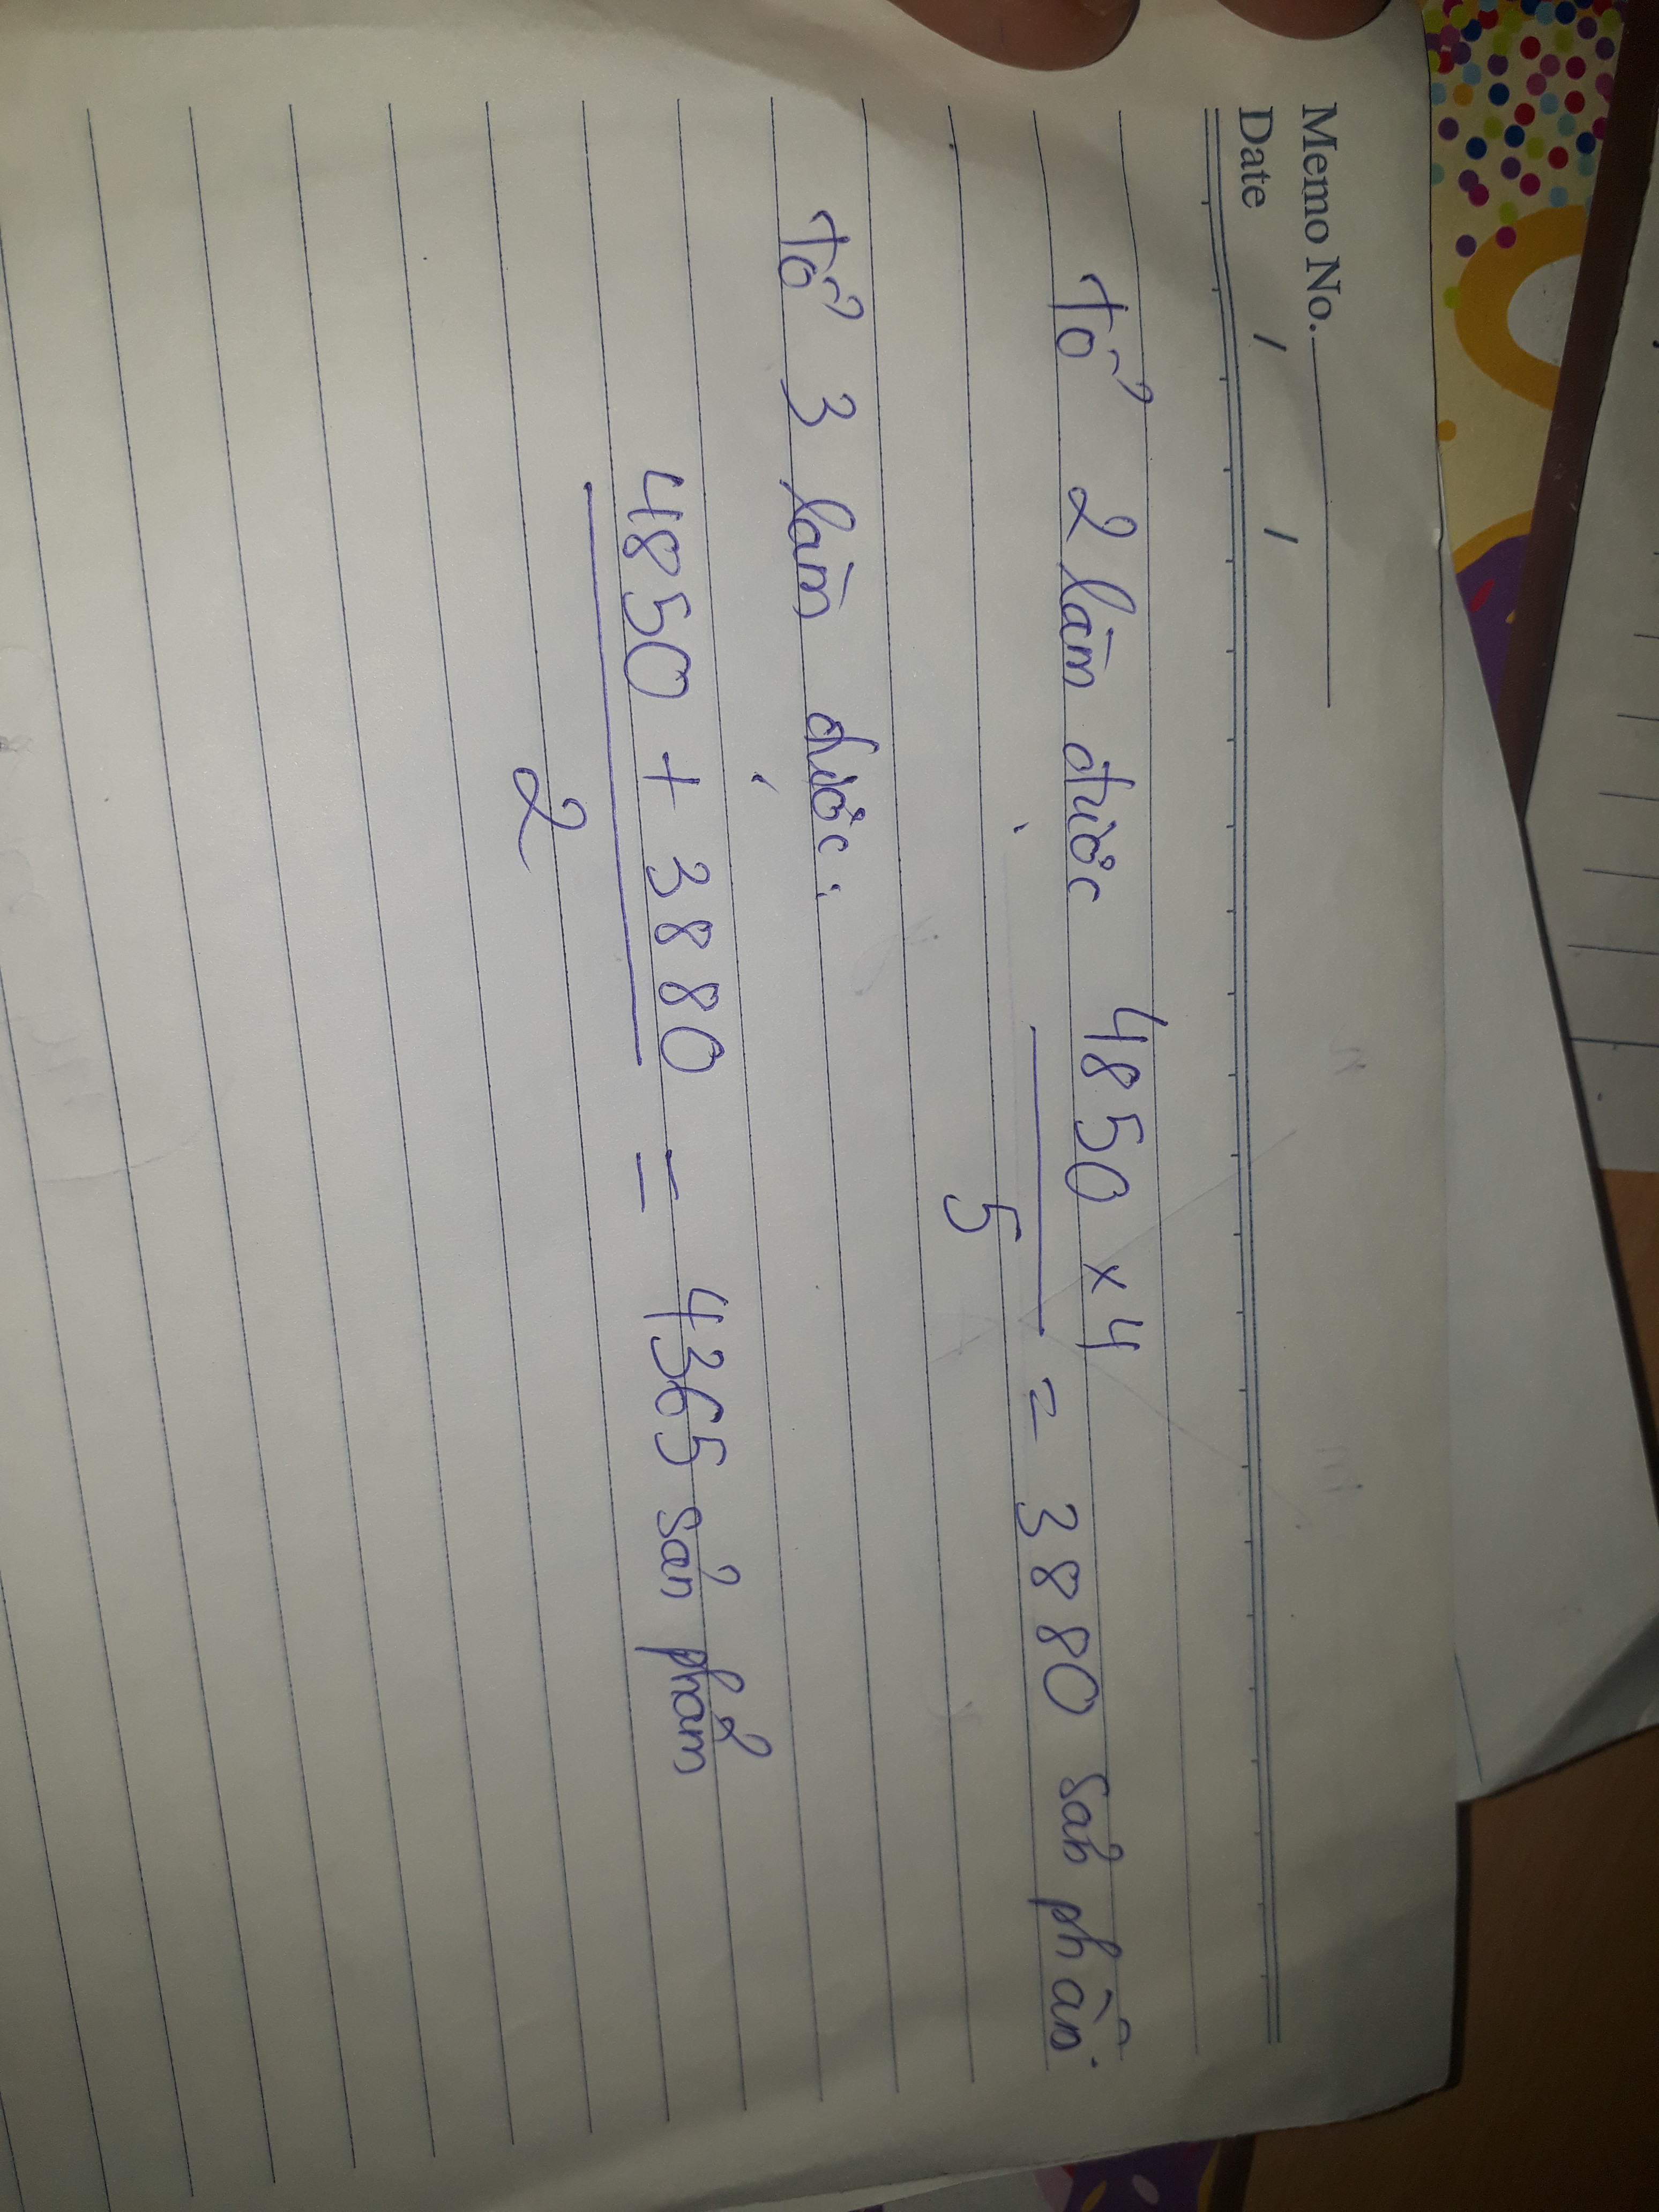 Memo No.
Date / /
Tổ 2 làm được 4850 x 4 = 3880 sản phẩm
5
Tổ 3 làm được:
4850 + 3880 = 4365 sản phẩm
2